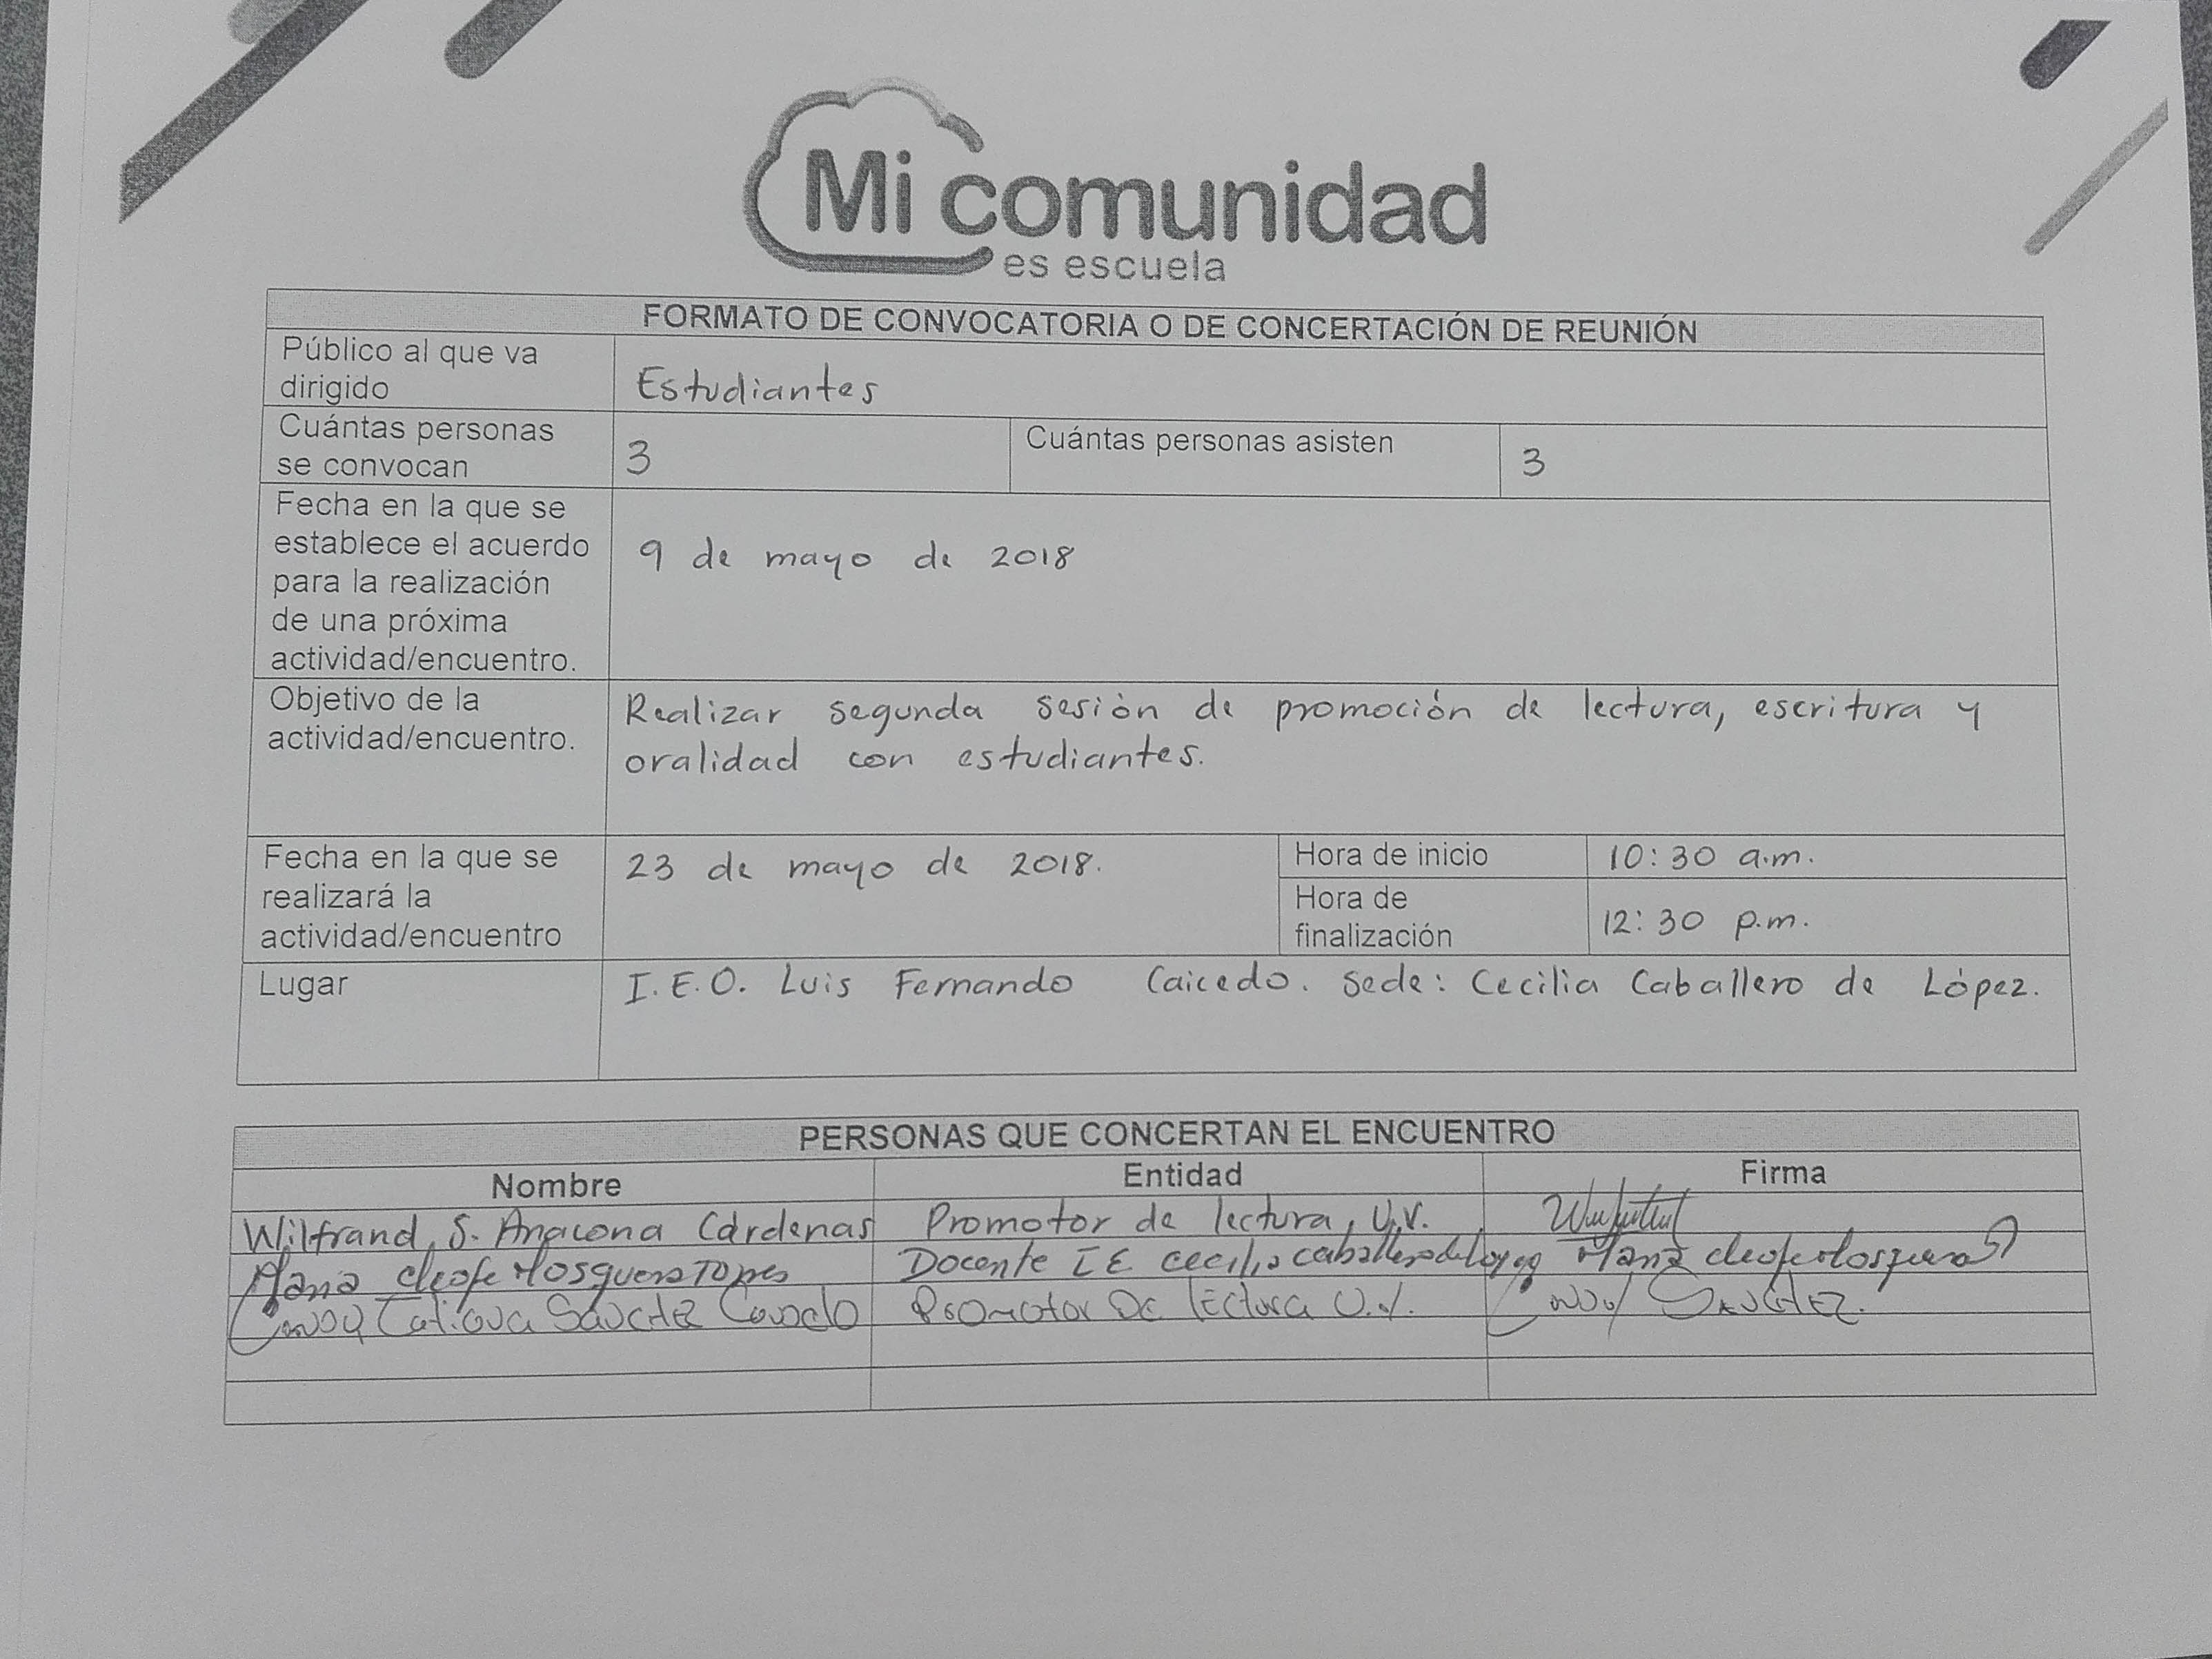 Mi comunidad
es escuela
FORMATO DE CONVOCATORIA O DE CONCERTACIÓN DE REUNIÓN
Público al que va
dirigido
Estudiantes
Cuántas personas
se convocan
3
Cuántas personas asisten
3
Fecha en la que se
establece el acuerdo
para la realización
de una próxima
actividad/encuentro.
9 de mayo de 2018
Objetivo de la
actividad/encuentro.
Realizar segunda sesión de promoción de lectura, escritura y
oralidad con estudiantes.
Fecha en la que se
realizará la
actividad/encuentro
23 de mayo de 2018.
Hora de inicio
10:30 a.m.
Hora de
finalización
12:30 p.m.
Lugar
I.E.O. Luis Fernando Caicedo. Sede: Cecilia Caballero de López.
PERSONAS QUE CONCERTAN EL ENCUENTRO
Nombre Entidad Firma
Wilfrand S. Anacona Cárdenas Promotor de lectura, U.V.
Maria cleofe Mosquera Docente I E cecilia caballero de Maria cleofe Mosquera
Sánchez Promotor De lectura U.V. Sanchez.